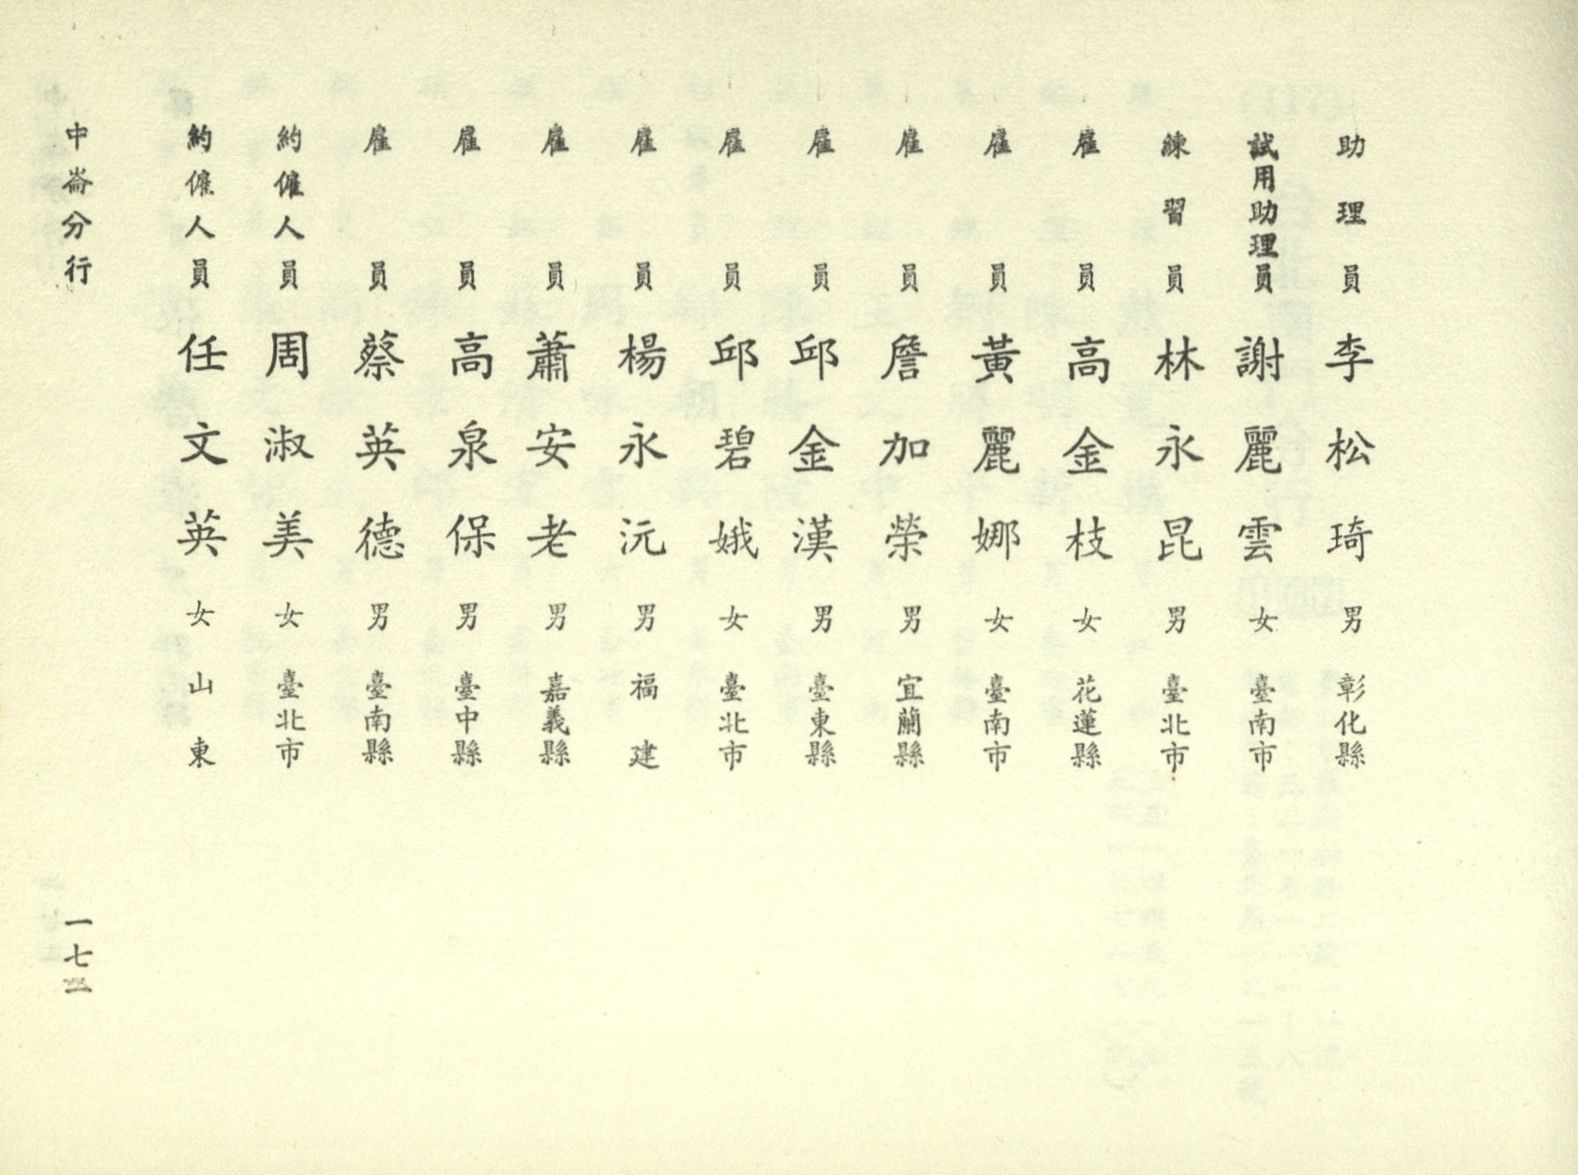 助理員 李松琦 男 彰化縣
試用助理員 謝麗雲 女 臺南市
練習員 林永昆 男 臺北市
雇員 高金枝 女 花蓮縣
雇員 黃麗娜 女 臺南市
雇員 詹加榮 男 宜蘭縣
雇員 邱金漢 男 臺東縣
雇員 邱碧娥 女 臺北市
雇員 楊永沅 男 福建
雇員 蕭安老 男 嘉義縣
雇員 高泉保 男 臺中縣
雇員 蔡英德 男 臺南縣
約僱人員 周淑美 女 臺北市
約僱人員 任文英 女 山東
中崙分行
一七